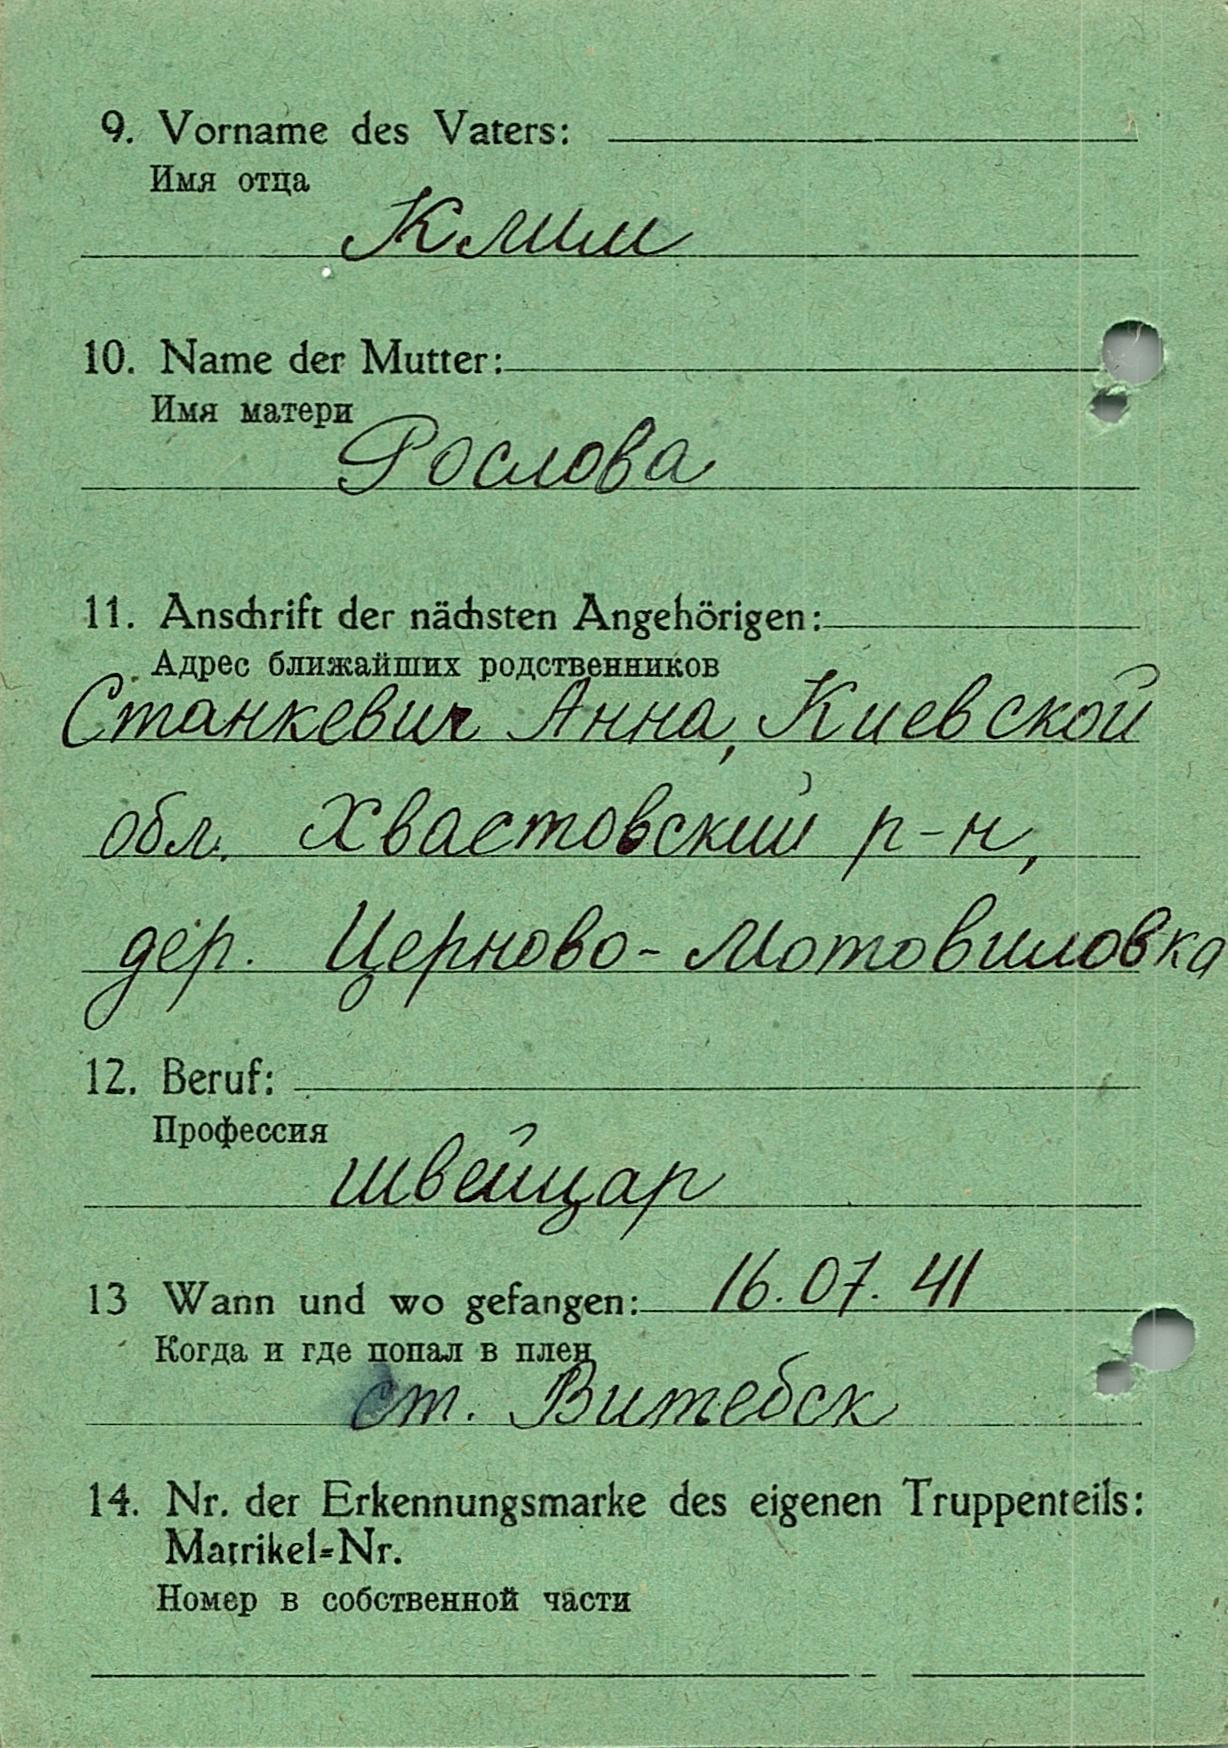 9. Vorname des Vaters:
Имя отца
Клим
10. Name der Mutter:
Имя матери
Рослова
11. Anschrift der nächsten Angehörigen:
Адрес ближайших родственников
Станкевич Анна, Киевской
обл. Хвастовский р-н,
дер. Церново-Мотовиловка
12. Beruf:
Профессия
швейцар
13 Wann und wo gefangen: 16.07.41
Когда и где попал в плен
ст. Витебск
14. Nr. der Erkennungsmarke des eigenen Truppenteils:
Matrikel=Nr.
Номер в собственной части